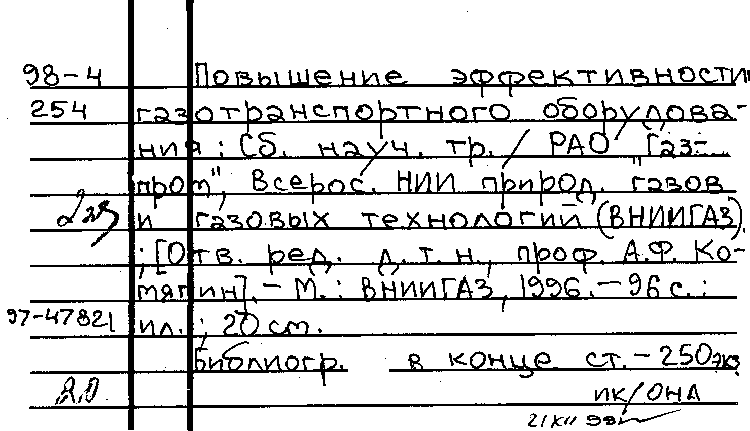 98-4 Повышение эффективности
254 газотранспортного оборудова-
ния : Сб. науч. тр. / РАО "Газ-
пром", Всерос. НИИ природ. газов
и газовых технологий (ВНИИГАЗ).
; [Отв. ред. д. т. н., проф. А.Ф. Ко-
мягин]. - М. : ВНИИГАЗ, 1996. - 96 с. :
97-47821 ил. ; 20 см.
Библиогр. в конце ст. - 250 экз
2.0 ик/ОНА
21 XII 98